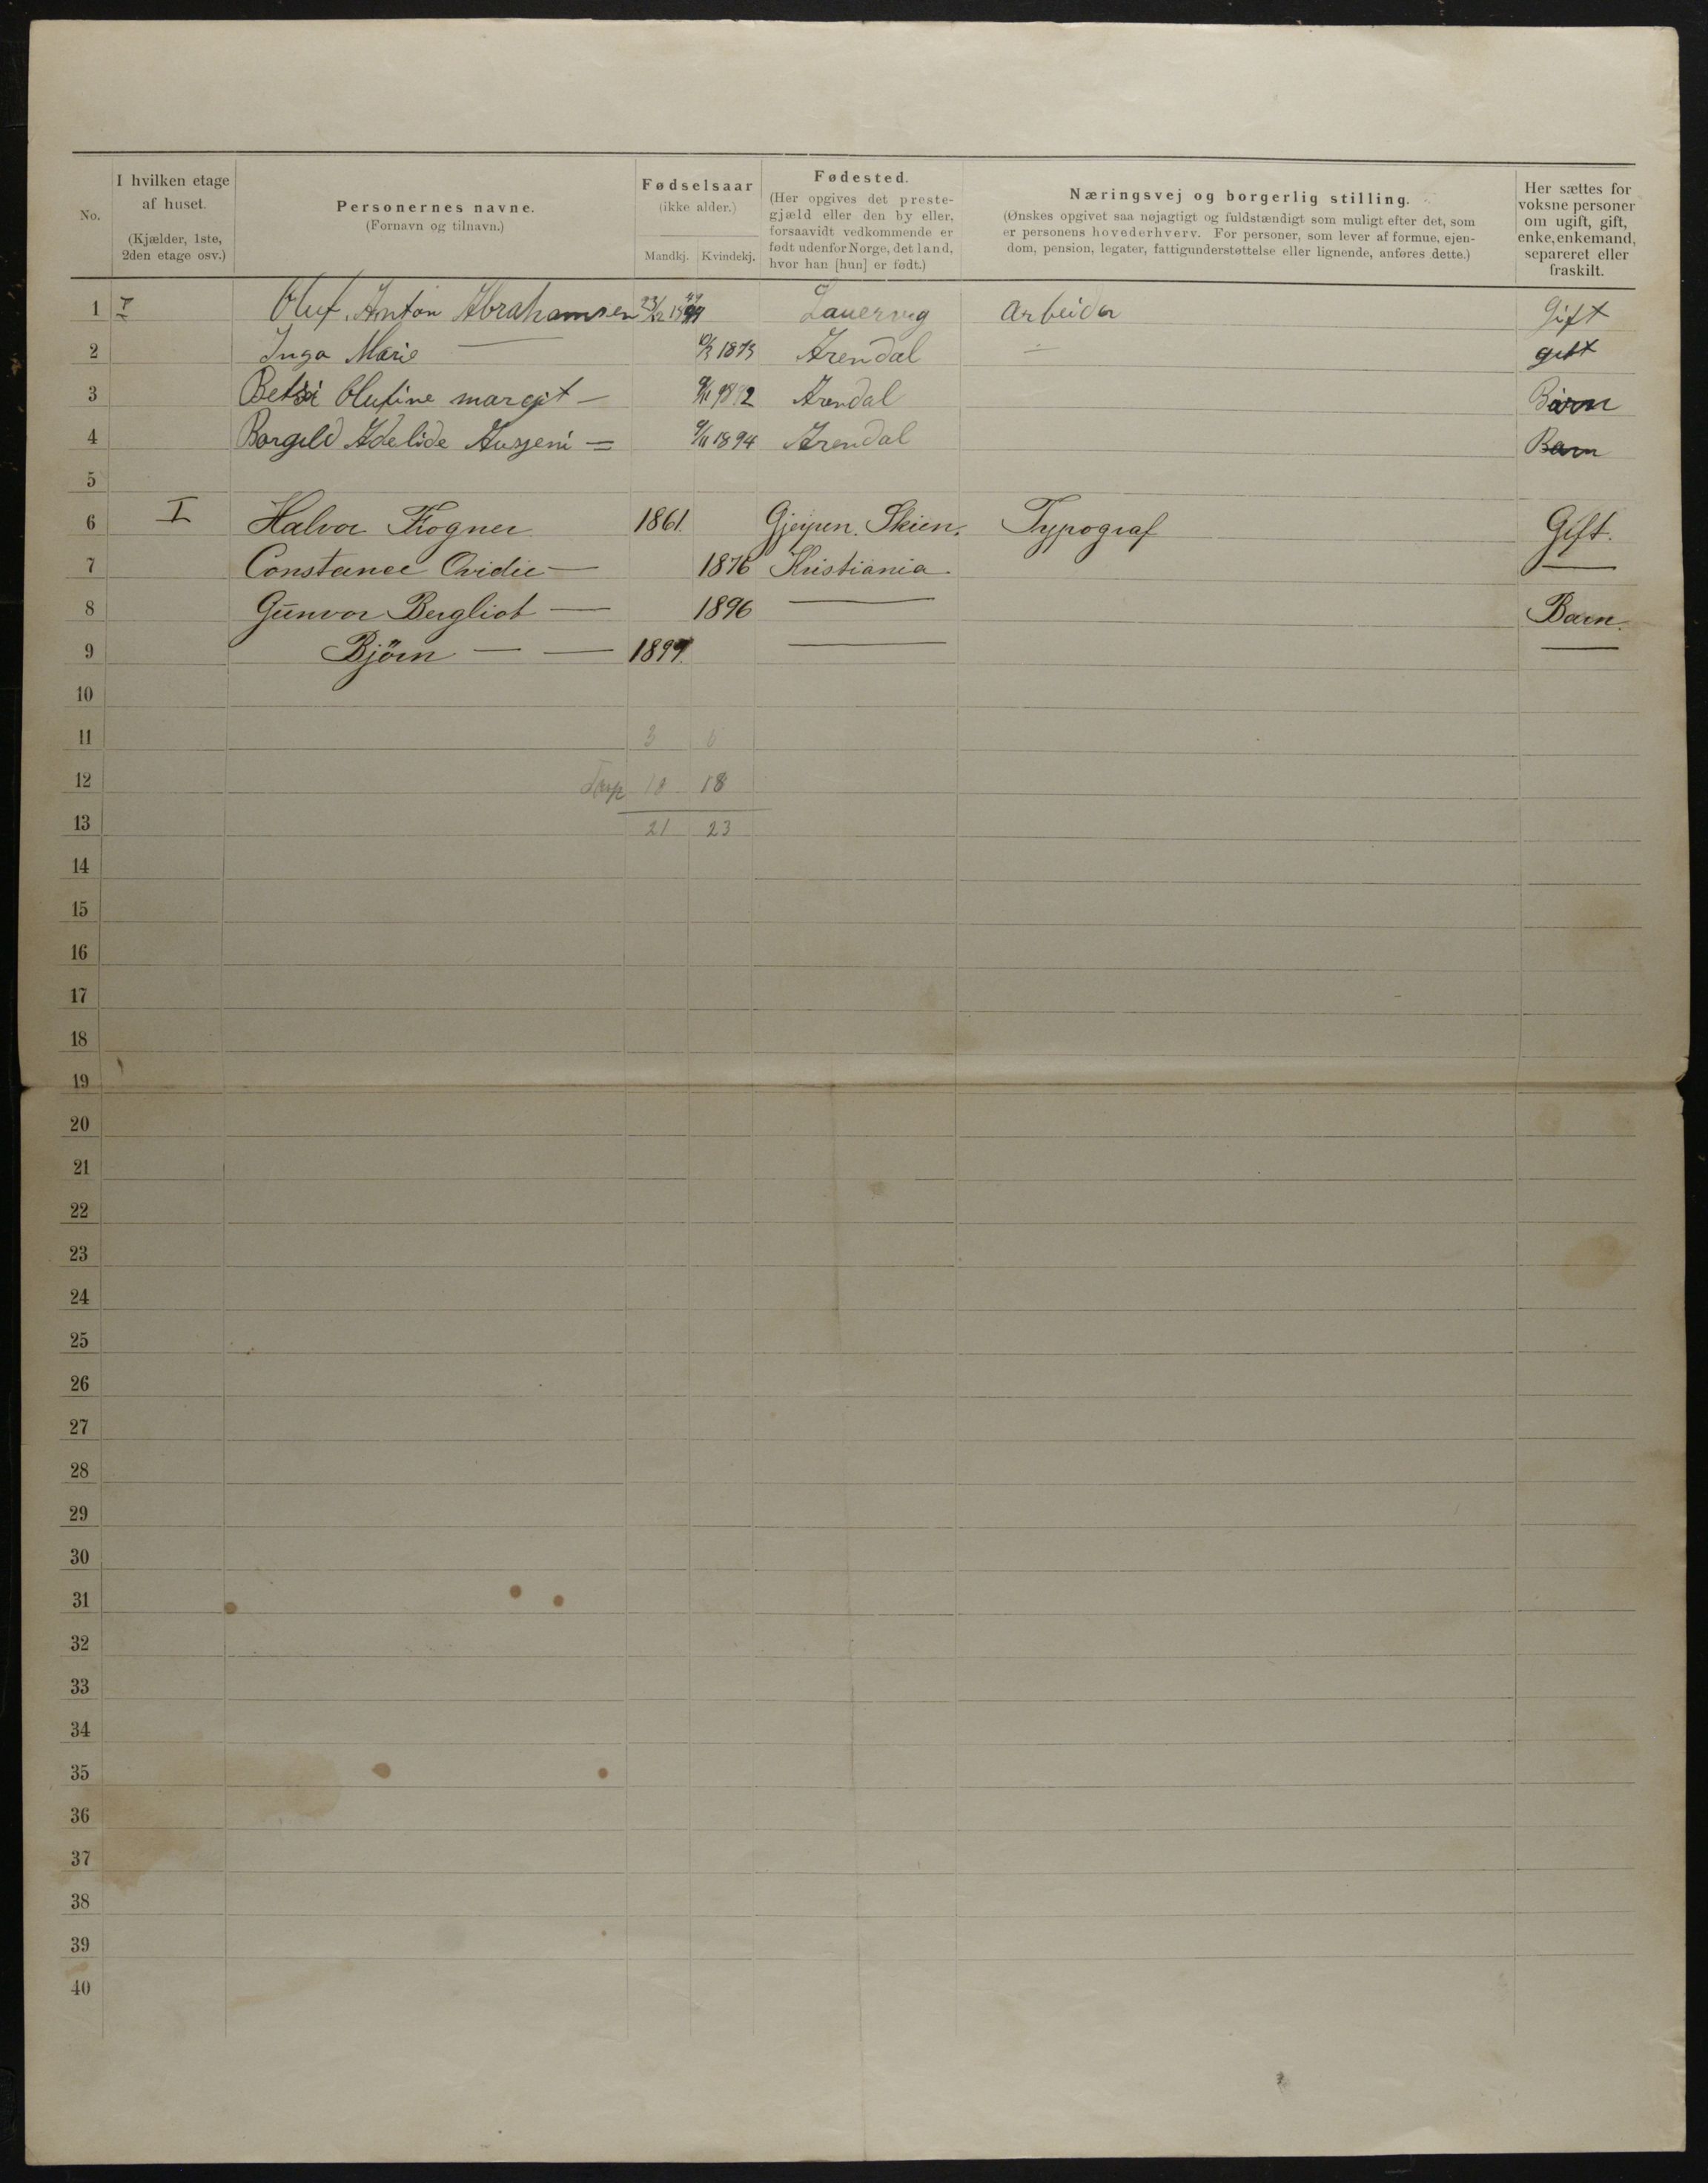 No.
I hvilken etage af huset. (Kjælder, 1ste, 2den etage osv.)
Personernes navne. (Fornavn og tilnavn.)
Fødselsaar (ikke alder.) Mandkj. Kvindekj.
Fødested. (Her opgives det prestegjæld eller den by eller, forsaavidt vedkommende er født udenfor Norge, det land, hvor han [hun] er født.)
Næringsvej og borgerlig stilling. (Ønskes opgivet saa nøjagtigt og fuldstændigt som muligt efter det, som er personens hovederhverv. For personer, som lever af formue, ejendom, pension, legater, fattigunderstøttelse eller lignende, anføres dette.)
Her sættes for voksne personer om ugift, gift, enke, enkemand, separeret eller fraskilt.
1 I Oluf Anton Abrahamsen 23/12 Lauervig Arbeider Gift
2 Inga Marie — 1873 Arendal gift
3 Betsi Olufine margit — Arendal Barn
4 Borgild Adelide Ausjeni — 9/11 1894 Arendal Barn
5
6 I Halvor Frogner 1861. Gjerpen. Skien. Typograf Gift.
7 Constance Ovidie — 1876 Kristiania. —
8 Gunvor Bergliot — 1896 — Barn.
9 Björn — — 1899. — —
10
11 3
12 18 18
13 21 23
14
15
16
17
18
19
20
21
22
23
24
25
26
27
28
29
30
31
32
33
34
35
36
37
38
39
40